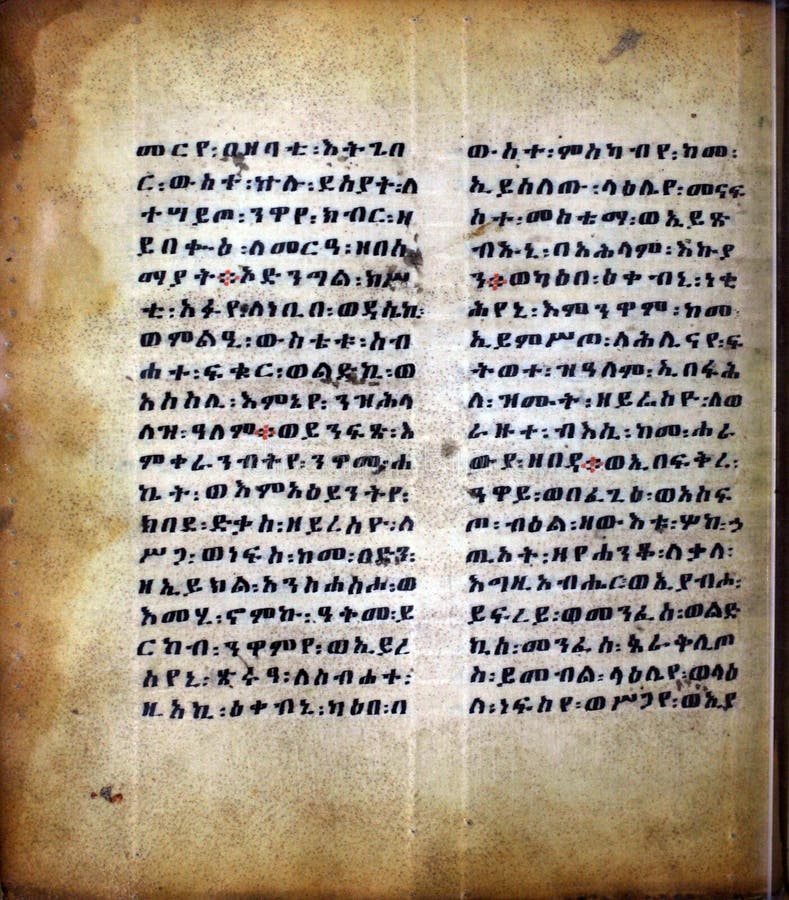 መርየ፡በዘባቲ፡እትጌበ
ር፡ውስተ፡ኵሉ፡ይእያት፡ለ
ተሣይጦ፡ንዋየ፡ክብር፡ዘ
ይበቍዕ፡ለመርዓ፡ዘበሰ
ማያት፨ኦድንግል፡ክሥ
ቲ፡አፉየ፡ለነቢብ፡ወዳኪኪ፡
ወምልዒ፡ውስቴቱ፡ስብ
ሐተ፡ፍቁር፡ወልድኪ፡ወ
አስስሊ፡እምኔየ፡ንዝሕላ
ለዝ፡ዓለም፨ወይንፍጽ፡እ
ምቀራንብትየ፡ንዋም፡ሐ
ኬት፡ወእምአዕይንትየ፡
ክበደ፡ድቃስ፡ዘይረእዮ፡ለ
ሥጋ፡ወነፍስ፡ከመ፡በድን፡
ዘኢይክል፡አንሰሐስሖ፡ወ
እመሂ፡ኖምኩ፡ዓቅመ፡ይ
ርከብ፡ንዋምየ፡ወኢይረ
ስየኒ፡ጽሩዓ፡ለስብሐተ፡
ዚአኪ፡ዕቀብኒ፡ካዕበ፡በ
ውስተ፡ምስካብየ፡ከመ፡
ኢይሰለጡ፡ላዕሌየ፡መናፍ
ስተ፡መስቴማ፡ወኢይጽ
ብኡኒ፡በአሕላም፡እኩያ
ን፨ወካዕበ፡ዕቀብኒ፡ነቂ
ሕየኒ፡እምንዋም፡ከመ፡
ኢይምሥጦ፡ለሕሊናየ፡ፍ
ትወተ፡ዝዓለም፡ኢበፋሕ
ለ፡ዝሙት፡ዘይሬስዮ፡ለወ
ራዙተ፡ብእሲ፡ከመ፡ሐራ
ውያ፡ዘበዳ፨ወኢበፍቅረ፡
ዓዋይ፡ወበፈጊዕ፡ወአስፍ
ጦ፡ብዕል፡ዘውእቱ፡ሦከ፡ኃ
ጢአት፡ዘየሐንቆ፡ለቃለ፡
እግዚአብሔር፡ወኢያብሖ፡
ይፍረይ፡ወመንፈስ፡ወልድ
ኪስ፡መንፈስ፡ጰራቅሊጦ
ስ፡ይመብል፡ላዕሌየ፡ወላዕ
ለ፡ነፍስየ፡ወሥጋየ፡ወኢያ